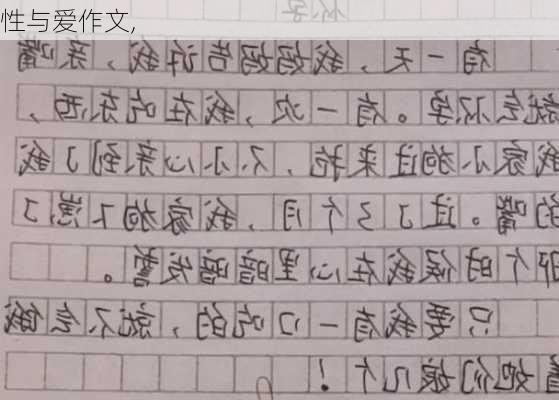 性与爱作文,
怀孕
有一天，我妈妈告诉我，亲嘴
就会怀孕。有一次，我在吃东西，
我家小狗过来抢，不小心亲到了我
的嘴。过了3个月，我家狗下了
那个时候我在心里暗暗发誓。
只要我有一口吃的，就不会饿
着她们娘几个！